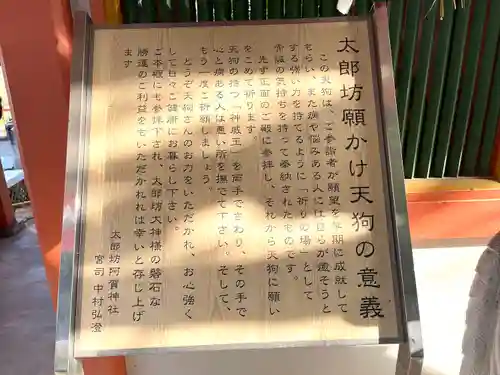 太郎坊願かけ天狗の意義
この天狗は、ご参詣者が願望を早期に成就して
もらい、また病や悩みある人には自らが癒そうと
する強い力を持てるように「祈りの場」として
報謝の気持ちを持って奉納されたものです。
先ず正面のご殿に参拝し、それから天狗に願い
をこめて祈ります。
天狗の持つ「神威玉」を両手でさわり、その手で
心と病ある人は悪い所を撫でて下さい。そして、
もう一度ご祈願しましょう。
どうぞ天狗さんのお力をいただかれ、お心強く
して日々ご健康にお暮らし下さい。
ご本殿にも参拝下され、太郎坊大神様の磐石な
勝運のご利益をもいただかれれば幸いと存じ上げ
ます
太郎坊阿賀神社
宮司 中村弘澄